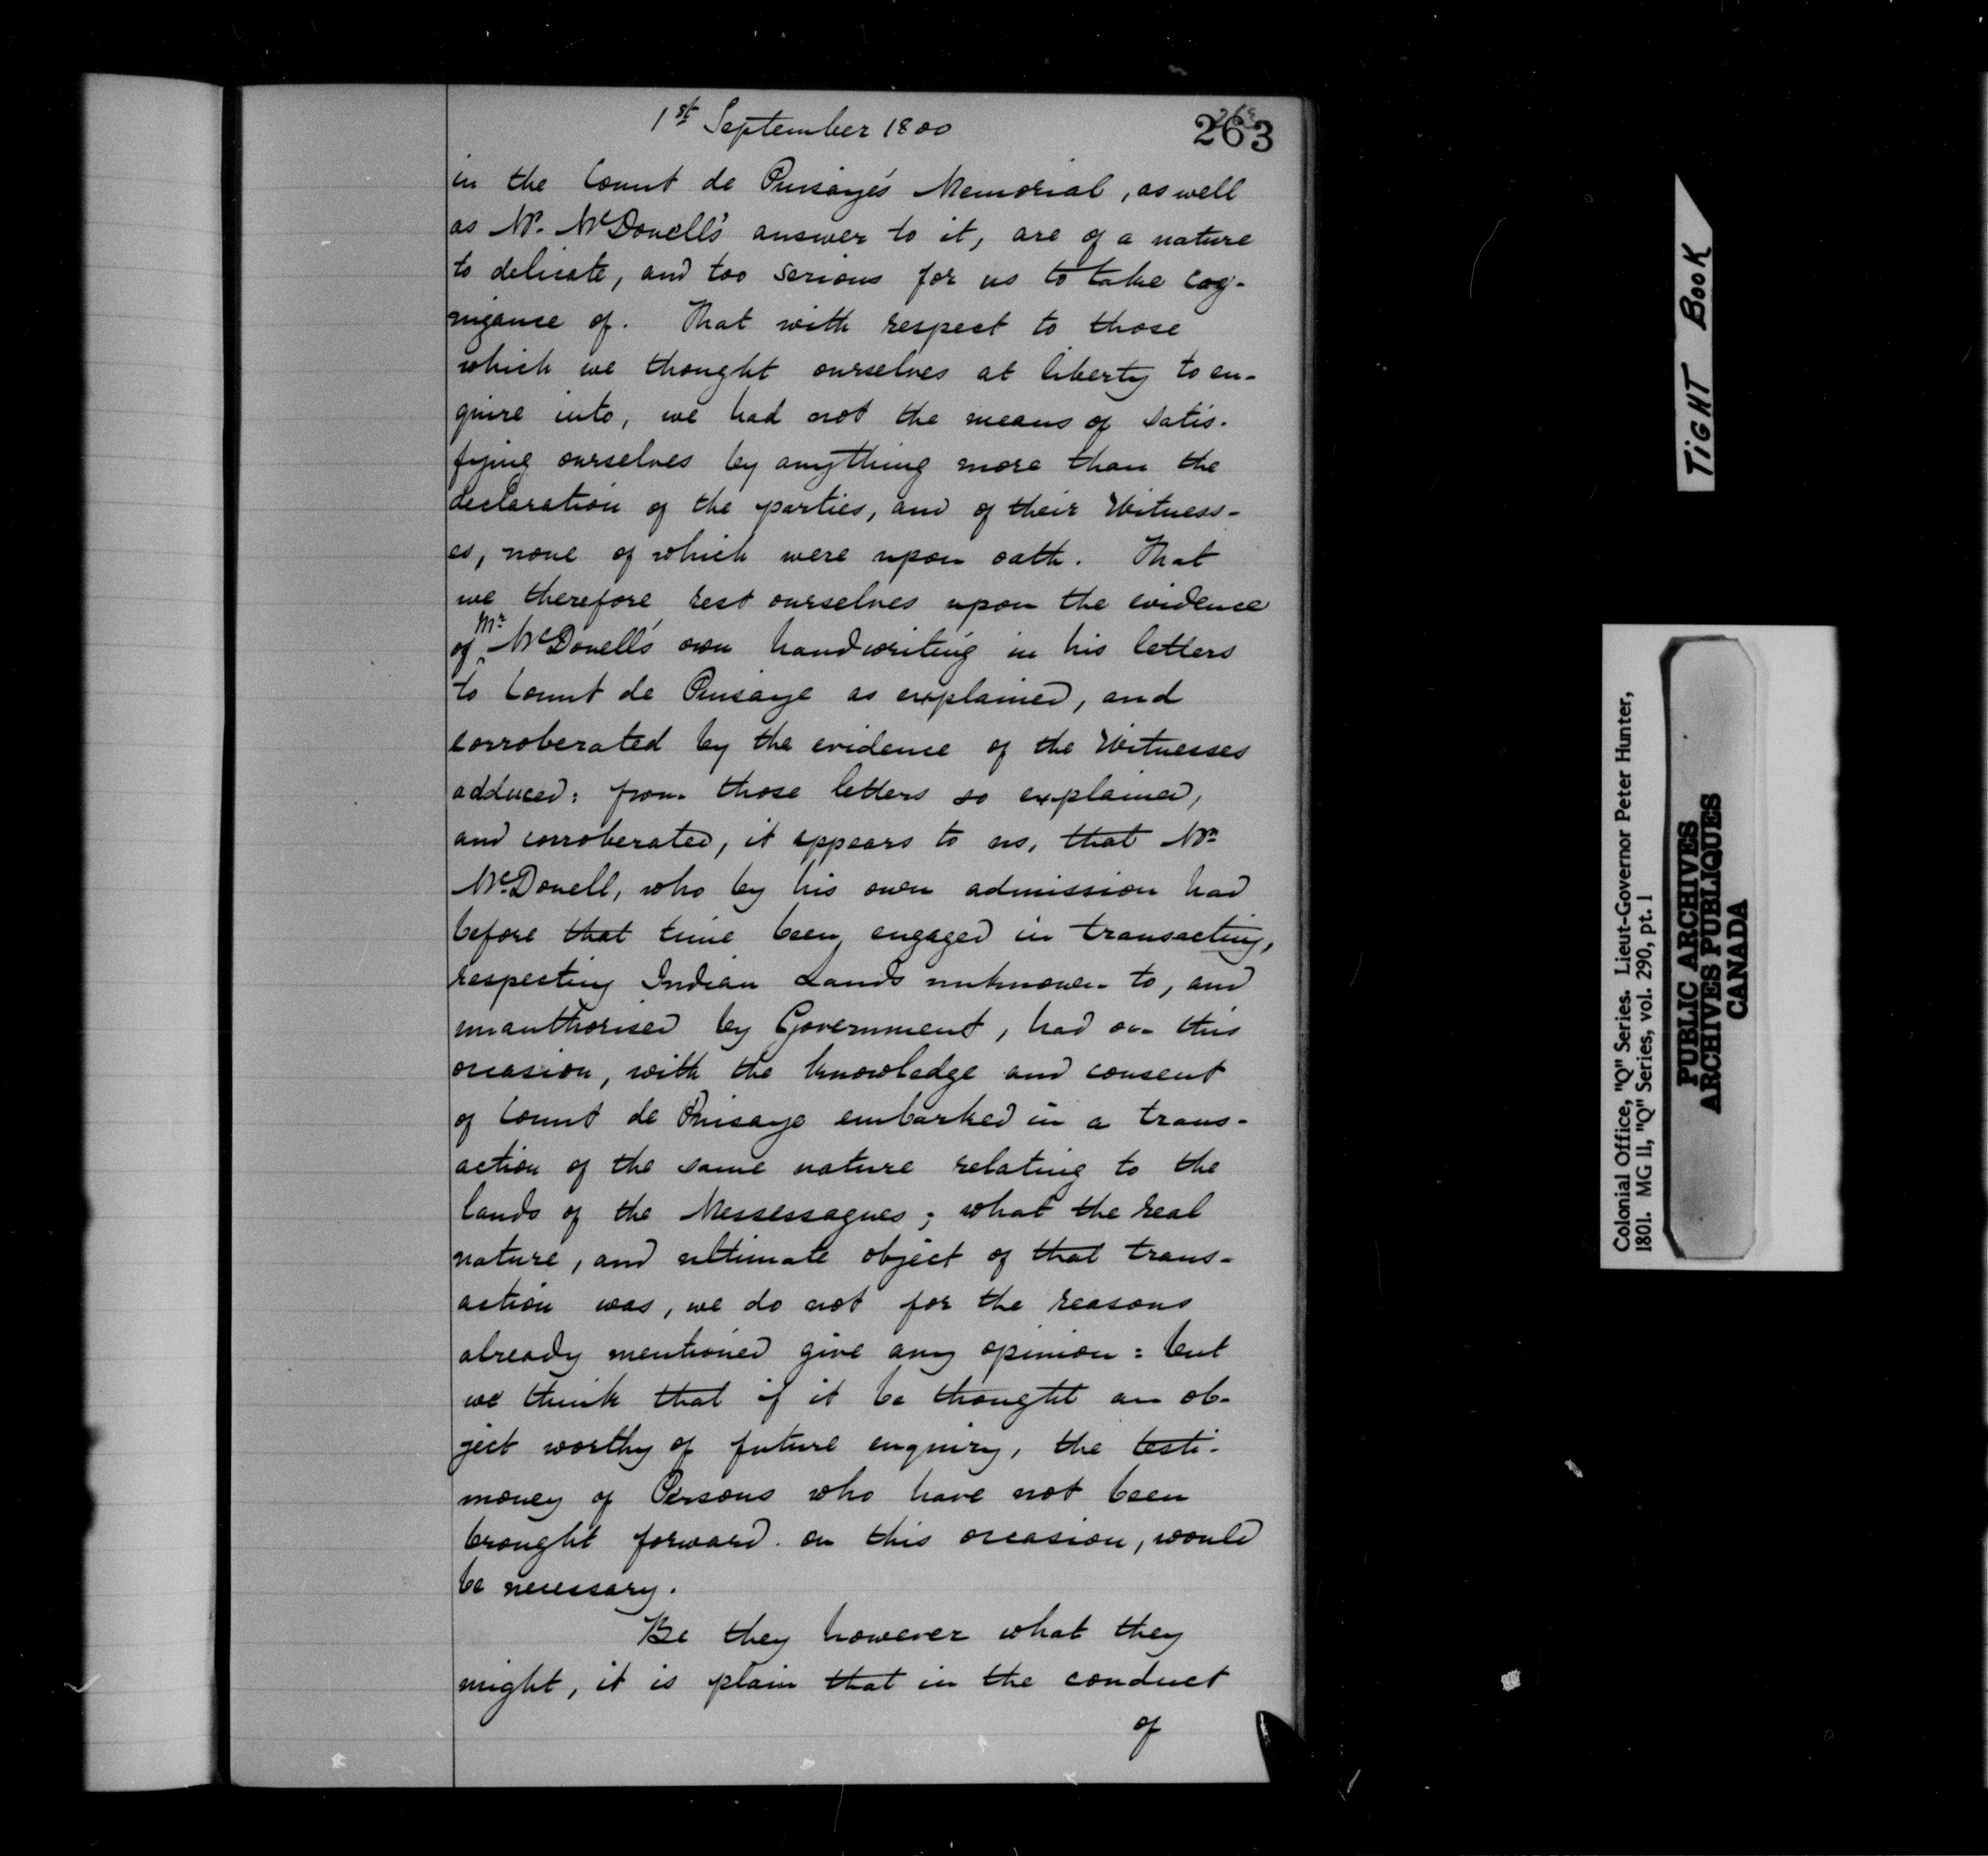 1st September 1800
263
in the Count de Puisaye's Memorial, as well
as Mr. McDonell's answer to it, are of a nature
to delicate, and too serious for us to take cog-
nizance of. That with respect to those
which we thought ourselves at liberty to en-
quire into, we had not the means of satis-
fying ourselves by anything more than the
declaration of the parties, and of their Witness-
es, none of which were upon oath. That
we therefore rest ourselves upon the evidence
of Mr McDonell's own handwriting in his letters
to Count de Puisaye as explained, and
corroberated by the evidence of the Witnesses
adduced: from those letters so explained,
and corroberated, it appears to us, that Mr
McDonell, who by his own admission had
before that time been engaged in transacting,
respecting Indian Lands unknown to, and
unauthorised by Government, had on this
occasion, with the knowledge and consent
of Count de Puisaye embarked in a trans-
action of the same nature relating to the
lands of the Messessagues; what the real
nature, and ultimate object of that trans-
action was, we do not for the reasons
already mentioned give any opinion: but
we think that if it be thought an ob-
ject worthy of future enquiry, the testi-
mony of Persons who have not been
brought forward on this occasion, would
be necessary.
Be they however what they
might, it is plain that in the conduct
of
TIGHT BOOK
Colonial Office, "Q" Series. Lieut-Governor Peter Hunter,
1801. MG 11, "Q" Series, vol. 290, pt. 1
PUBLIC ARCHIVES
ARCHIVES PUBLIQUES
CANADA